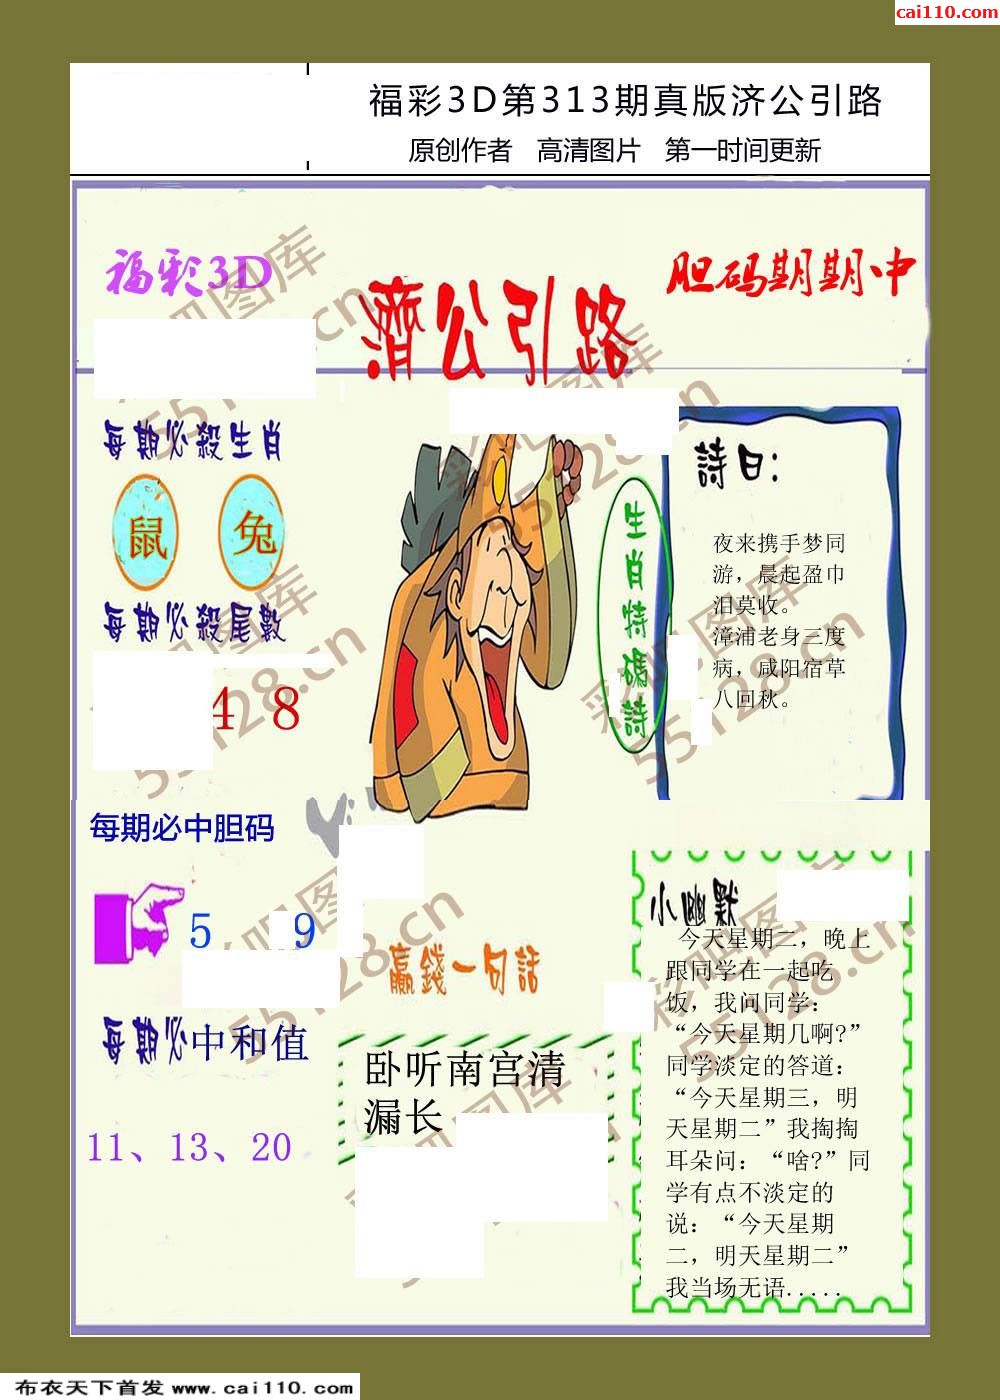 cai110.com
福彩3D第313期真版济公引路
原创作者 高清图片 第一时间更新
福彩3D
濟公引路
胆码期期中
每期必殺生肖
鼠 兔
每期必殺尾數
4 8
每期必中胆码
5 9
每期必中和值
11、13、20
生肖特碼詩
詩曰:
夜来携手梦同
游，晨起盈巾
泪莫收。
漳浦老身三度
病，咸阳宿草
八回秋。
贏錢一句話
卧听南宫清
漏长
小幽默
今天星期二，晚上
跟同学在一起吃
饭，我问同学：
“今天星期几啊?”
同学淡定的答道：
“今天星期三，明
天星期二”我掏掏
耳朵问：“啥?”同
学有点不淡定的
说：“今天星期
二，明天星期二”
我当场无语.....
彩吧图库
55128.cn
布衣天下首发 www.cai110.com